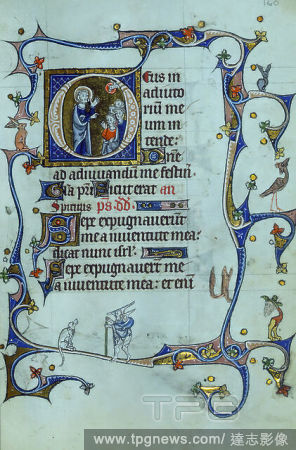 160
Deus in
adiuto
rium me
um in
tende: Dñe
ad adiuuandū me festin
Gl̄a pr̄i Sicut erat an
ps dd
Sepe expugnauerūt
me a iuuentute mea:
dicat nunc isrl.
Sepe expugnauerūt me
a iuuentute mea: et eni
TPG
www.tpgnews.com / 達志影像